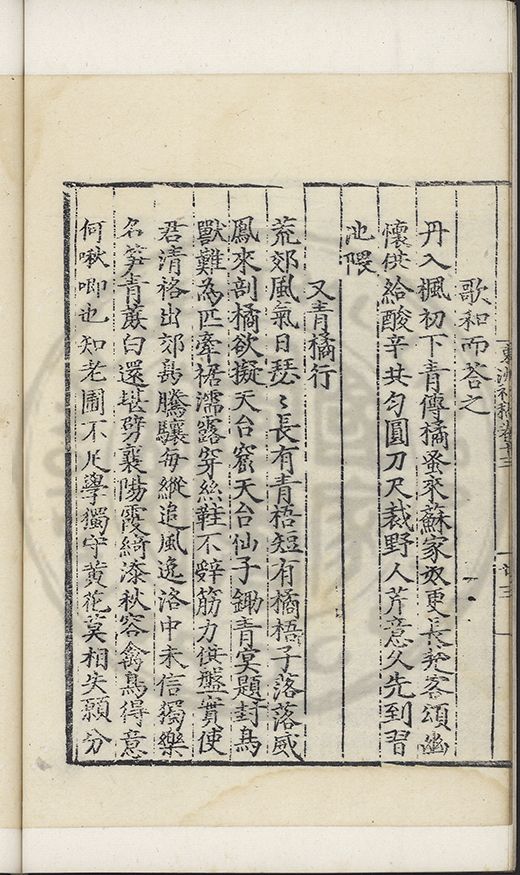 歌和而荅之
丹入楓初下青傳橘蚤來蘇家奴更長楚客頌幽
懷供給酸辛共勻圓刀尺裁野人芹意久先到習
池隈
又青橘行
荒郊風氣日瑟〻長有青梧短有橘梧子落落威
鳳來剖橘欲擬天台窟天台仙子鋤青堂題封鳥
獸難為匹牽裾濡露穿絲鞋不辤筋力供盤實使
君清裕出郊垌騰驤每縱追風逸洛中未信獨樂
名笋青蔟白還堪劈襄陽霞綺漆秋容禽鳥得意
何啾唧也知老圃不足學獨守黃花莫相失願分